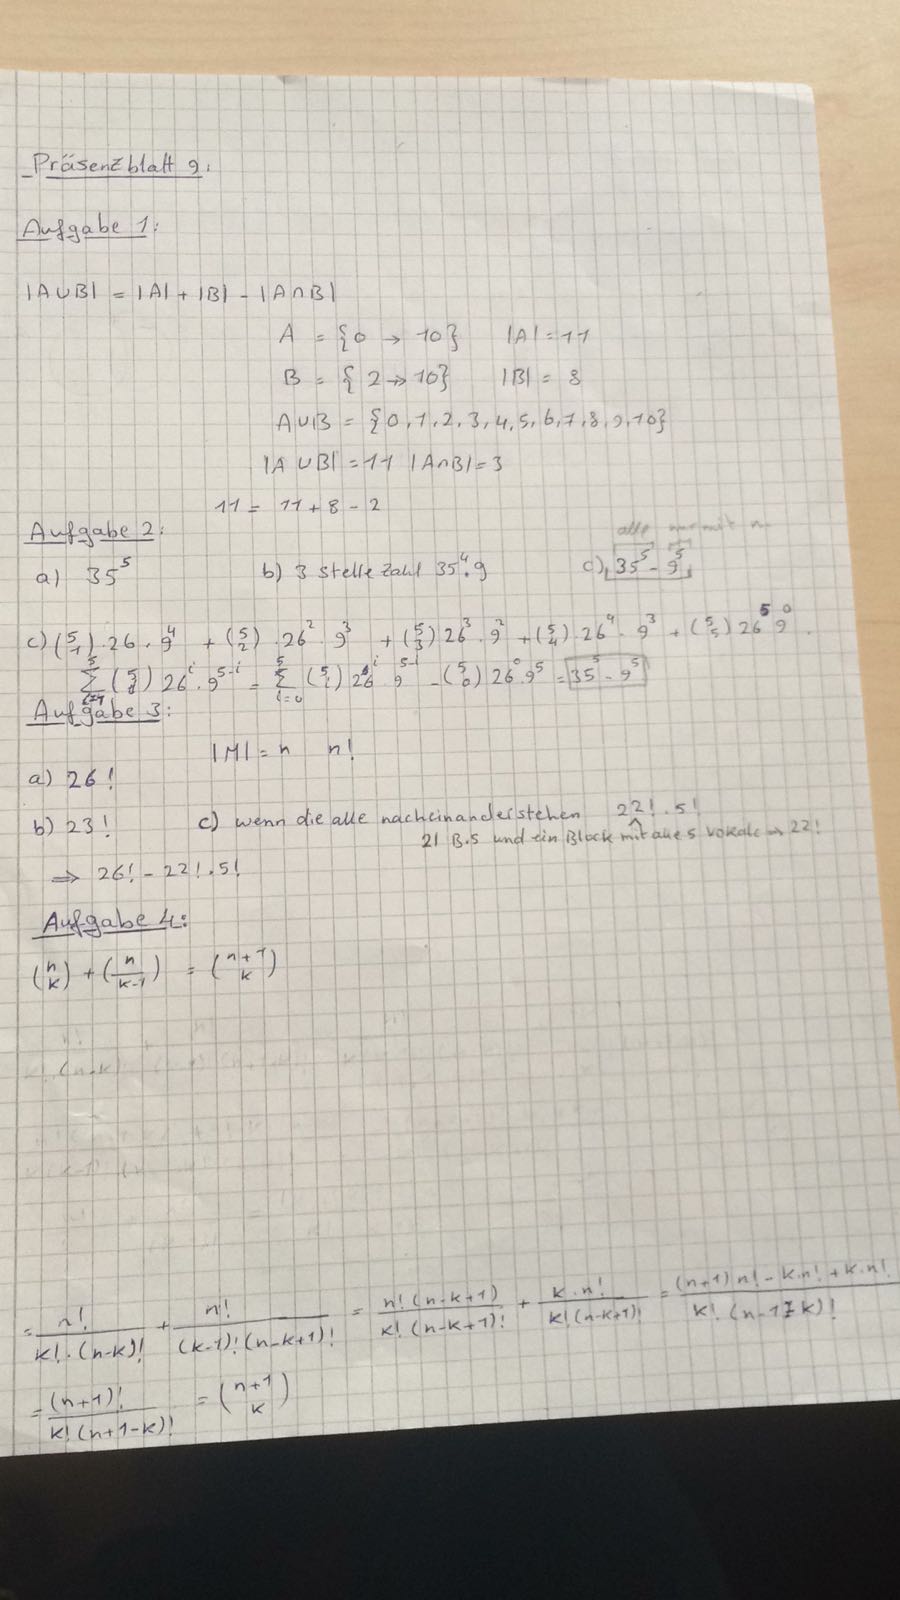 Präsenzblatt 9:
Aufgabe 1:
|A∪B| = |A| + |B| - |A∩B|
A = {0 → 10} |A| = 11
B = { 2 → 10} |B| = 8
A∪B = {0,1,2,3,4,5,6,7,8,9,10}
|A ∪B| = 11 |A∩B| = 3
11 = 11 + 8 - 2
Aufgabe 2:
alle nur mit
a) 35⁵ b) 3 Stelle Zahl 35⁴·9 c) 35⁵ - 9⁵
c) (5 1)·26·9⁴ + (5 2)·26²·9³ + (5 3) 26³·9² + (5 4)·26⁴·9³ + (5 5) 26⁵ 9⁰
∑ (5 i) 26ⁱ·9⁵⁻ⁱ = ∑ i=0 5 (5 i) 26ⁱ·9⁵⁻ⁱ - (5 0) 26⁰·9⁵ = 35⁵ - 9⁵
Aufgabe 3:
|M| = n n!
a) 26!
b) 23! c) wenn die alle nacheinander stehen 22!·5!
21 B.S und ein Block mit alle 5 Vokale → 22!
⇒ 26! - 22!·5!
Aufgabe 4:
(n k) + (n k-1) = (n+1 k)
= n! / k!·(n-k)! + n! / (k-1)!(n-k+1)! = n!(n-k+1) / k!(n-k+1)! + k·n! / k!(n-k+1)! = (n+1)n! - k·n! + k·n! / k!(n-1+k)!
= (n+1)! / k!(n+1-k)! = (n+1 k)